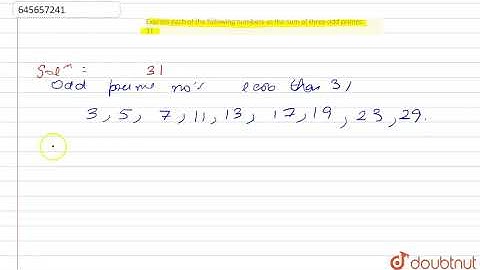 645657241
Express each of the following numbers as the sum of three odd primes:
31
Solⁿ = 31
Odd prime no's less than 31
3, 5, 7, 11, 13, 17, 19, 23, 29.
doubtnut